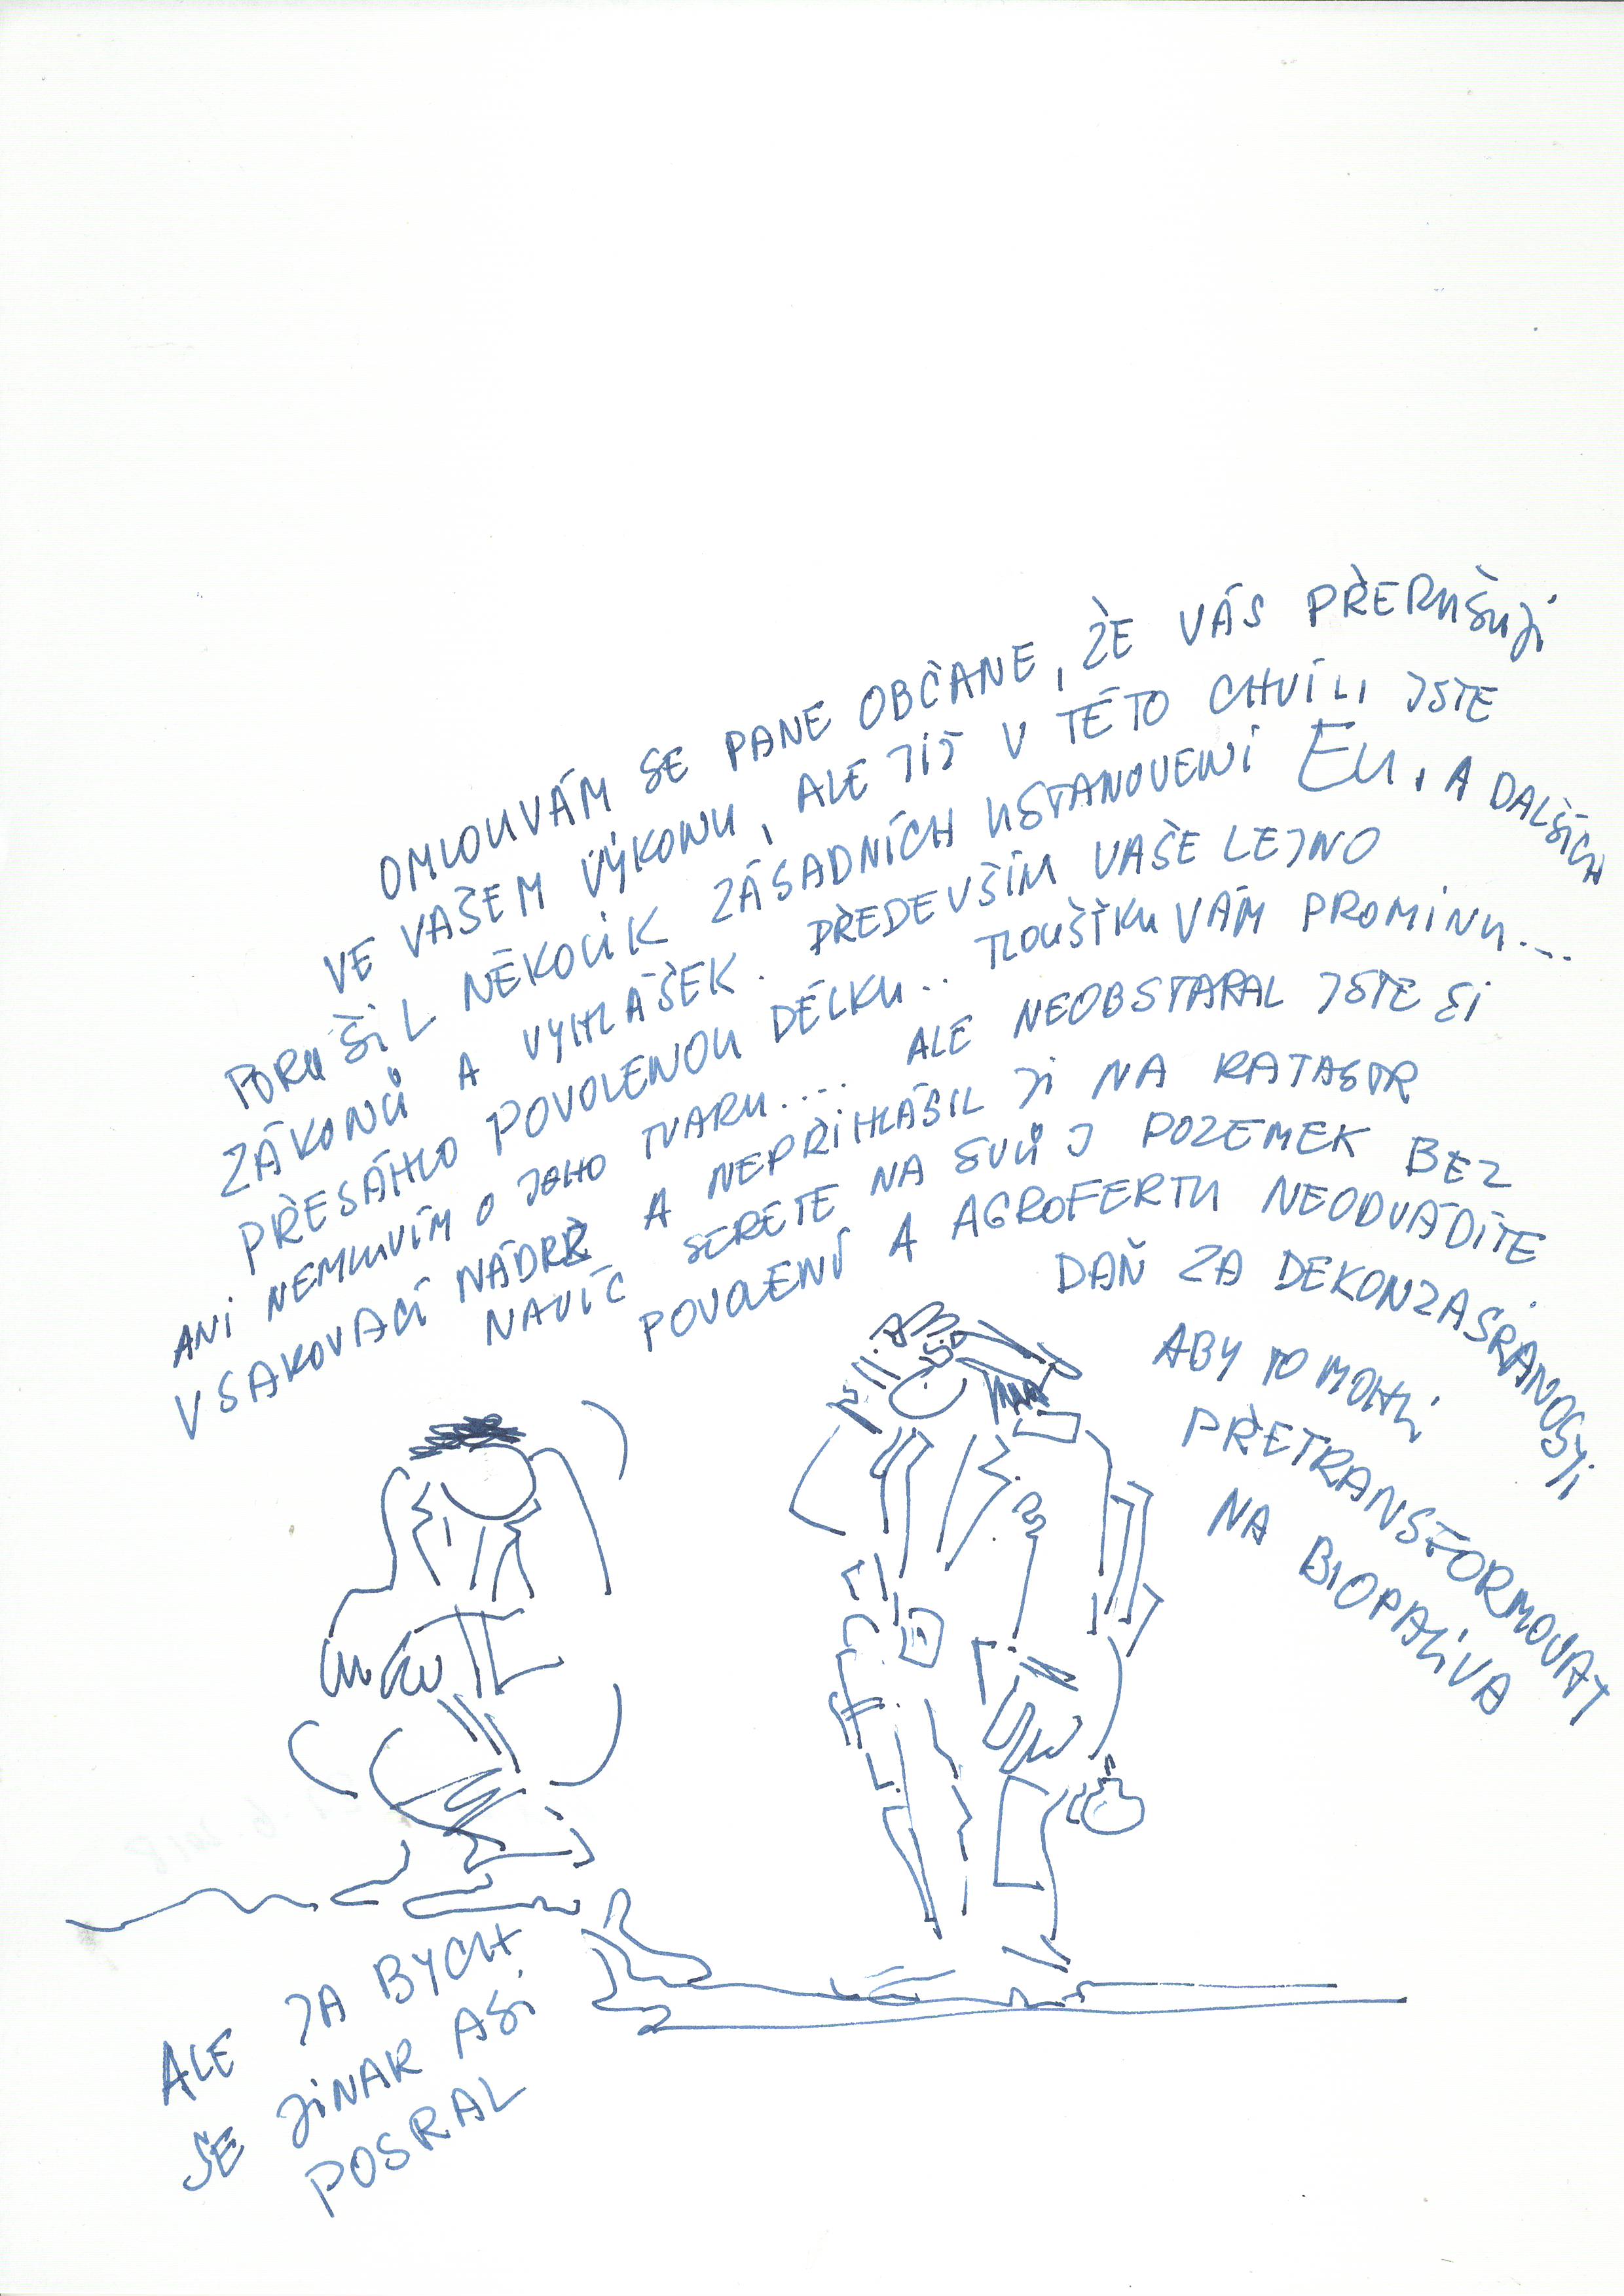 OMLOUVÁM SE PANE OBČANE, ŽE VÁS PŘERUŠUJI
VE VAŠEM VÝKONU, ALE JIŽ V TÉTO CHVÍLI JSTE
PORUŠIL NĚKOLIK ZÁSADNÍCH USTANOVENÍ EU, A DALŠÍCH
ZÁKONŮ A VYHLÁŠEK. PŘEDEVŠÍM VAŠE LEJNO
PŘESÁHLO POVOLENOU DÉLKU.. TLOUŠŤKU VÁM PROMINU...
ANI NEMLUVÍM O JEHO TVARU.... ALE NEOBSTARAL JSTE SI
VSAKOVACÍ NÁDRŽ A NEPŘIHLÁSIL JI NA KATASTR
NAVÍC SERETE NA SVŮJ POZEMEK BEZ
POVOLENÍ A AGROFERTU NEODVÁDÍTE
DAŇ ZA DEKONZASRANOSTI
ABY TO MOHLI
PŘETRANSFORMOVAT
NA BIOPALIVA
ALE JA BYCH
SE JINAK ASI
POSRAL